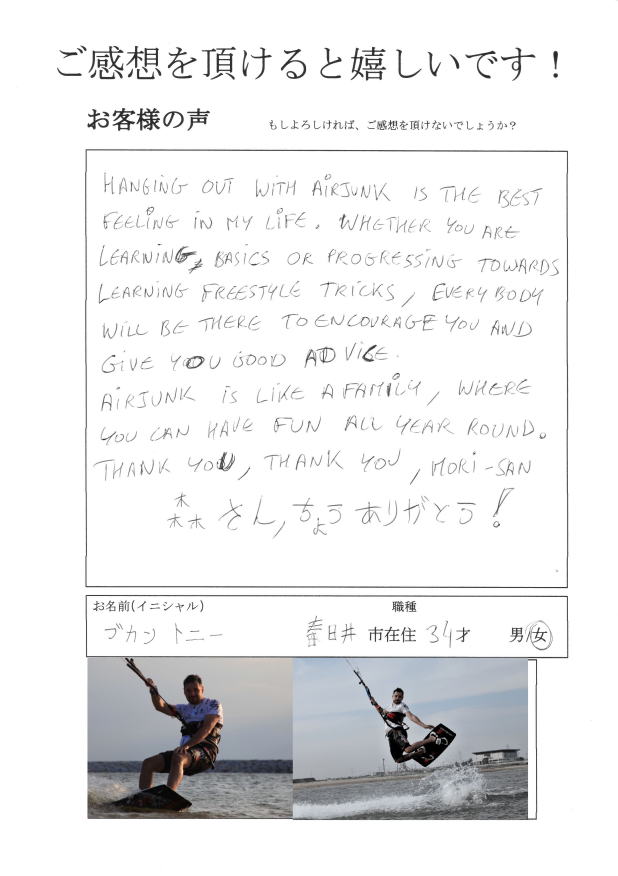 ご感想を頂けると嬉しいです！
お客様の声 もしよろしければ、ご感想を頂けないでしょうか？
HANGING OUT WITH AIRJUNK IS THE BEST
FEELING IN MY LIFE. WHETHER YOU ARE
LEARNING, BASICS OR PROGRESSING TOWARDS
LEARNING FREESTYLE TRICKS, EVERYBODY
WILL BE THERE TO ENCOURAGE YOU AND
GIVE YOU GOOD ADVICE.
AIRJUNK IS LIKE A FAMILY, WHERE
YOU CAN HAVE FUN ALL YEAR ROUND.
THANK YOU, THANK YOU, MORI-SAN
森さん,ちょうありがとう!
お名前(イニシャル) 職種
ブカン トニー 春日井 市在住 34才 男/女